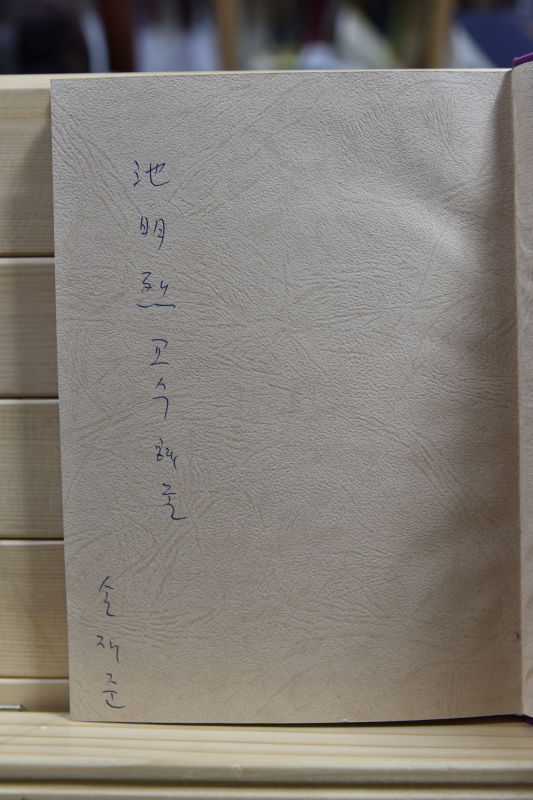 池明烈 교수 혜존
손재준